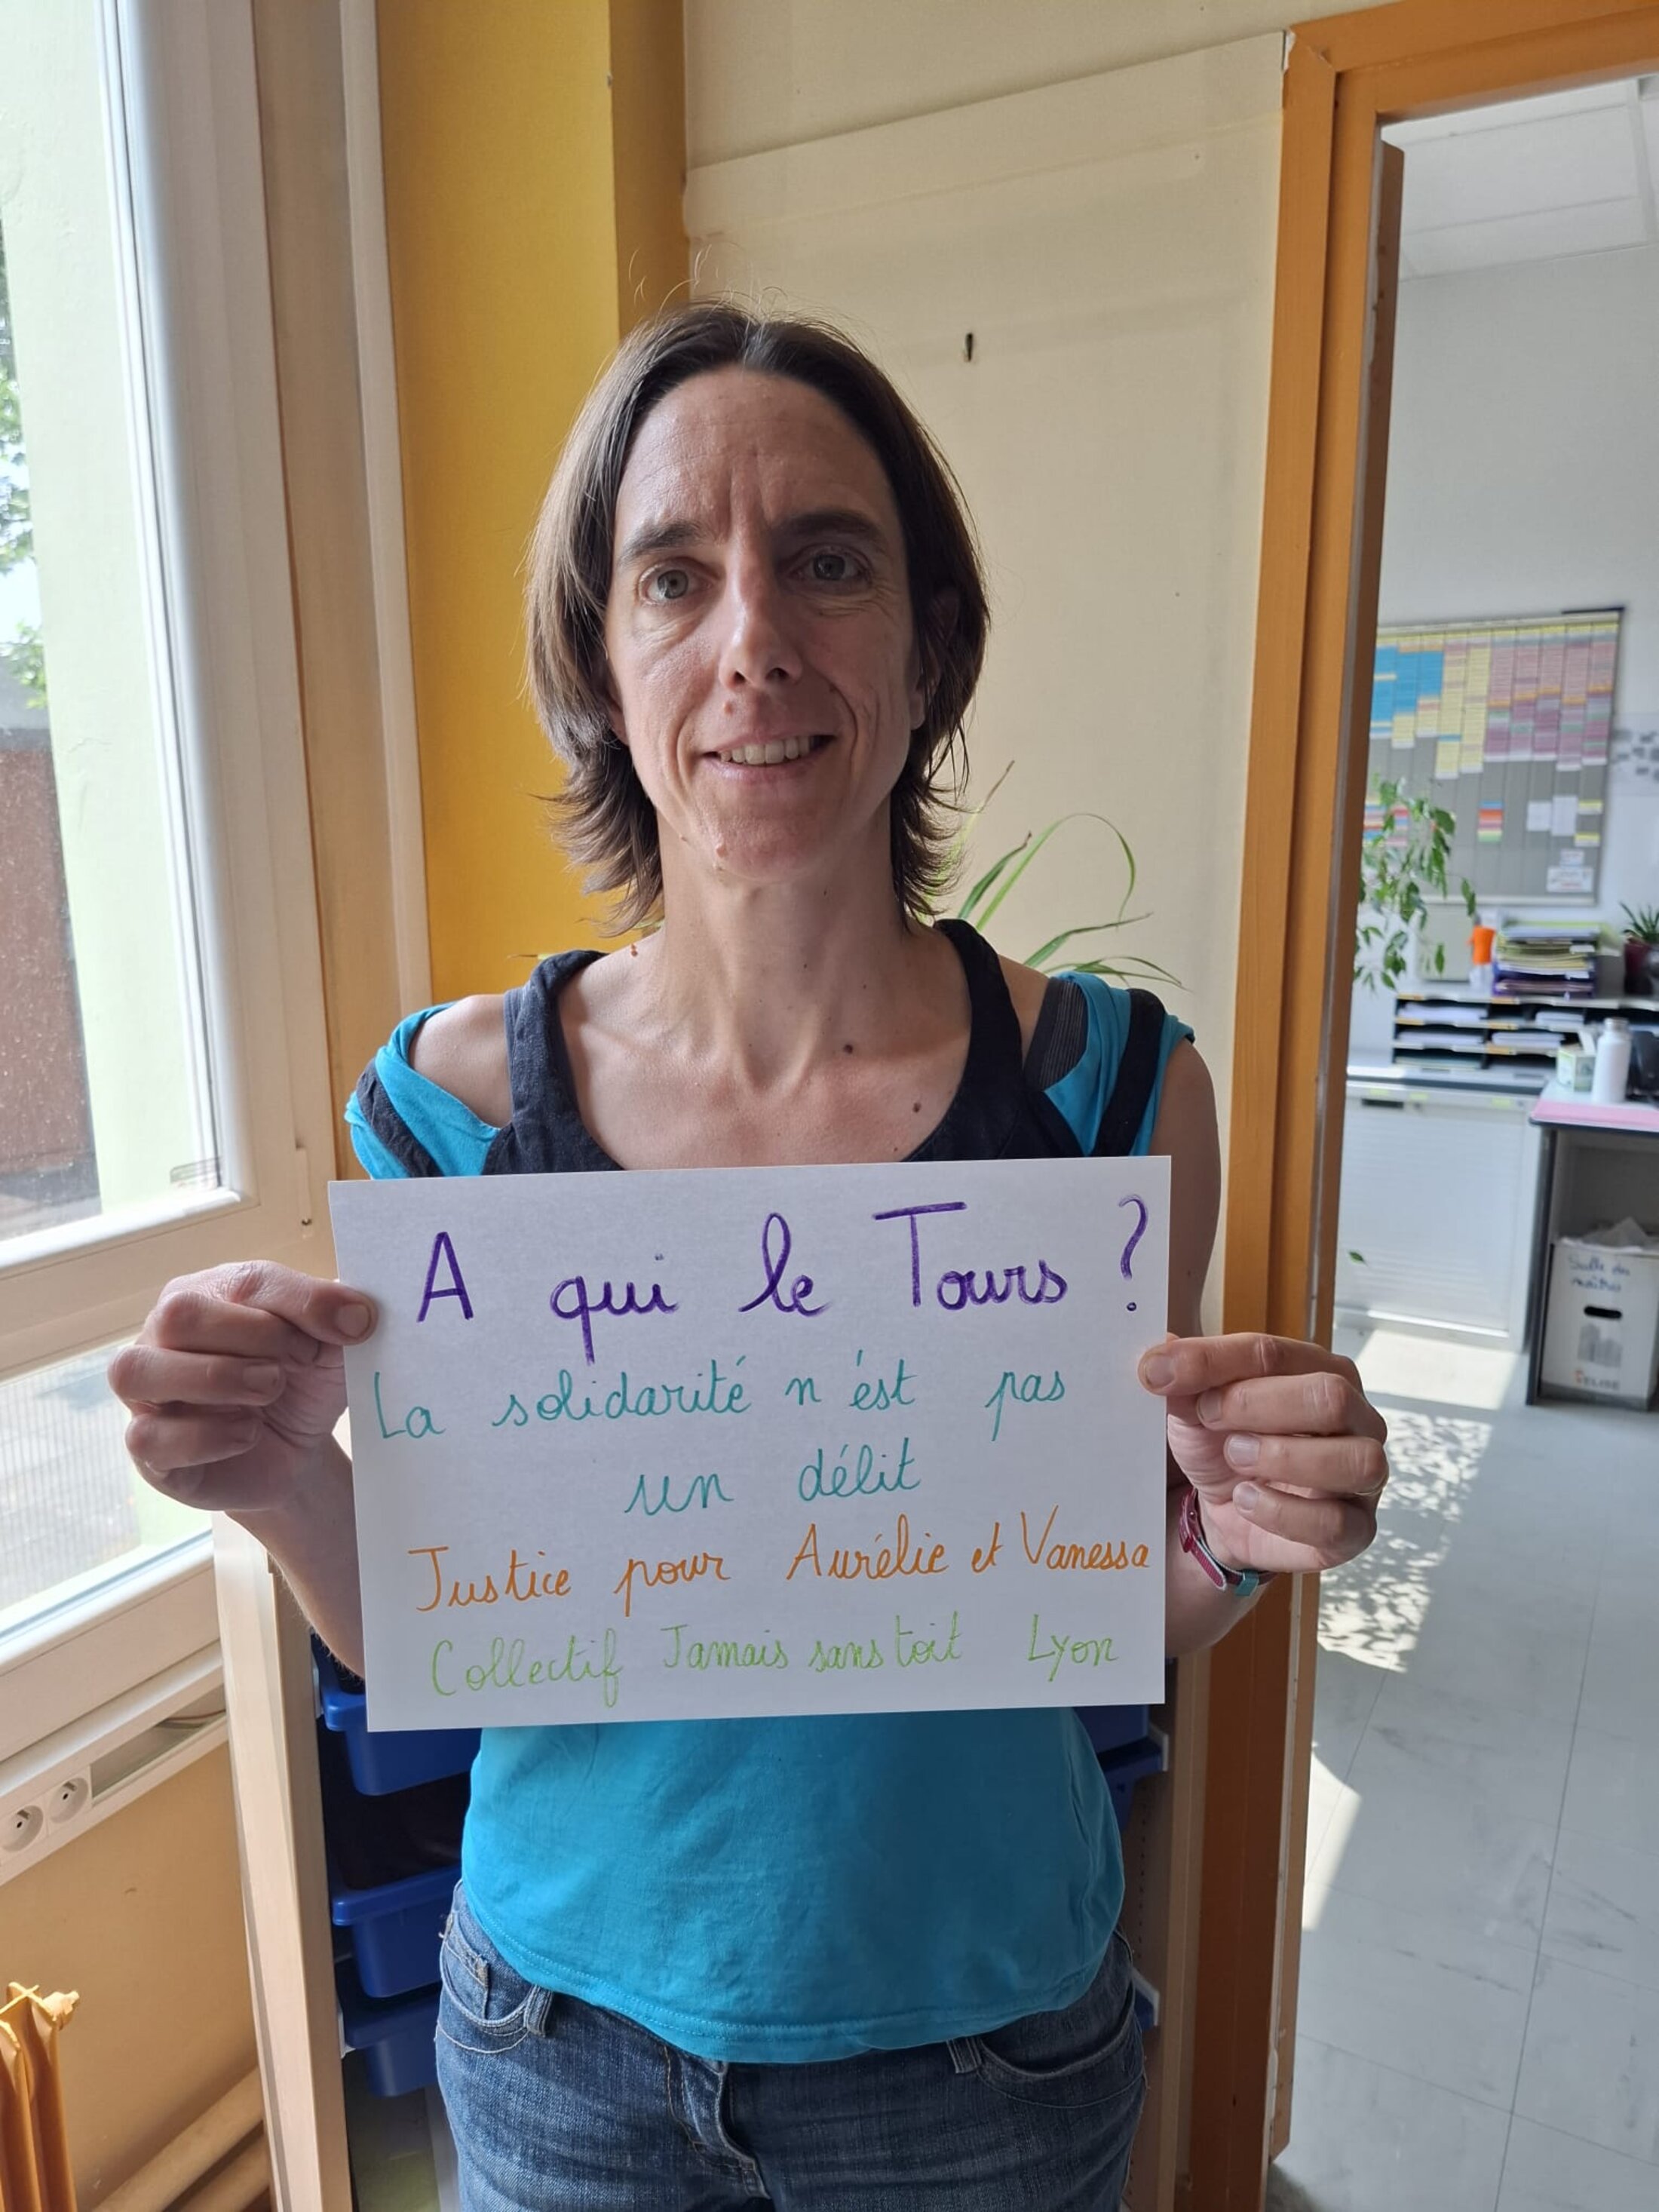 A qui le Tours ?
La solidarité n'est pas
un délit
Justice pour Aurélie et Vanessa
Collectif Jamais sans toit Lyon
Salle des
maîtres